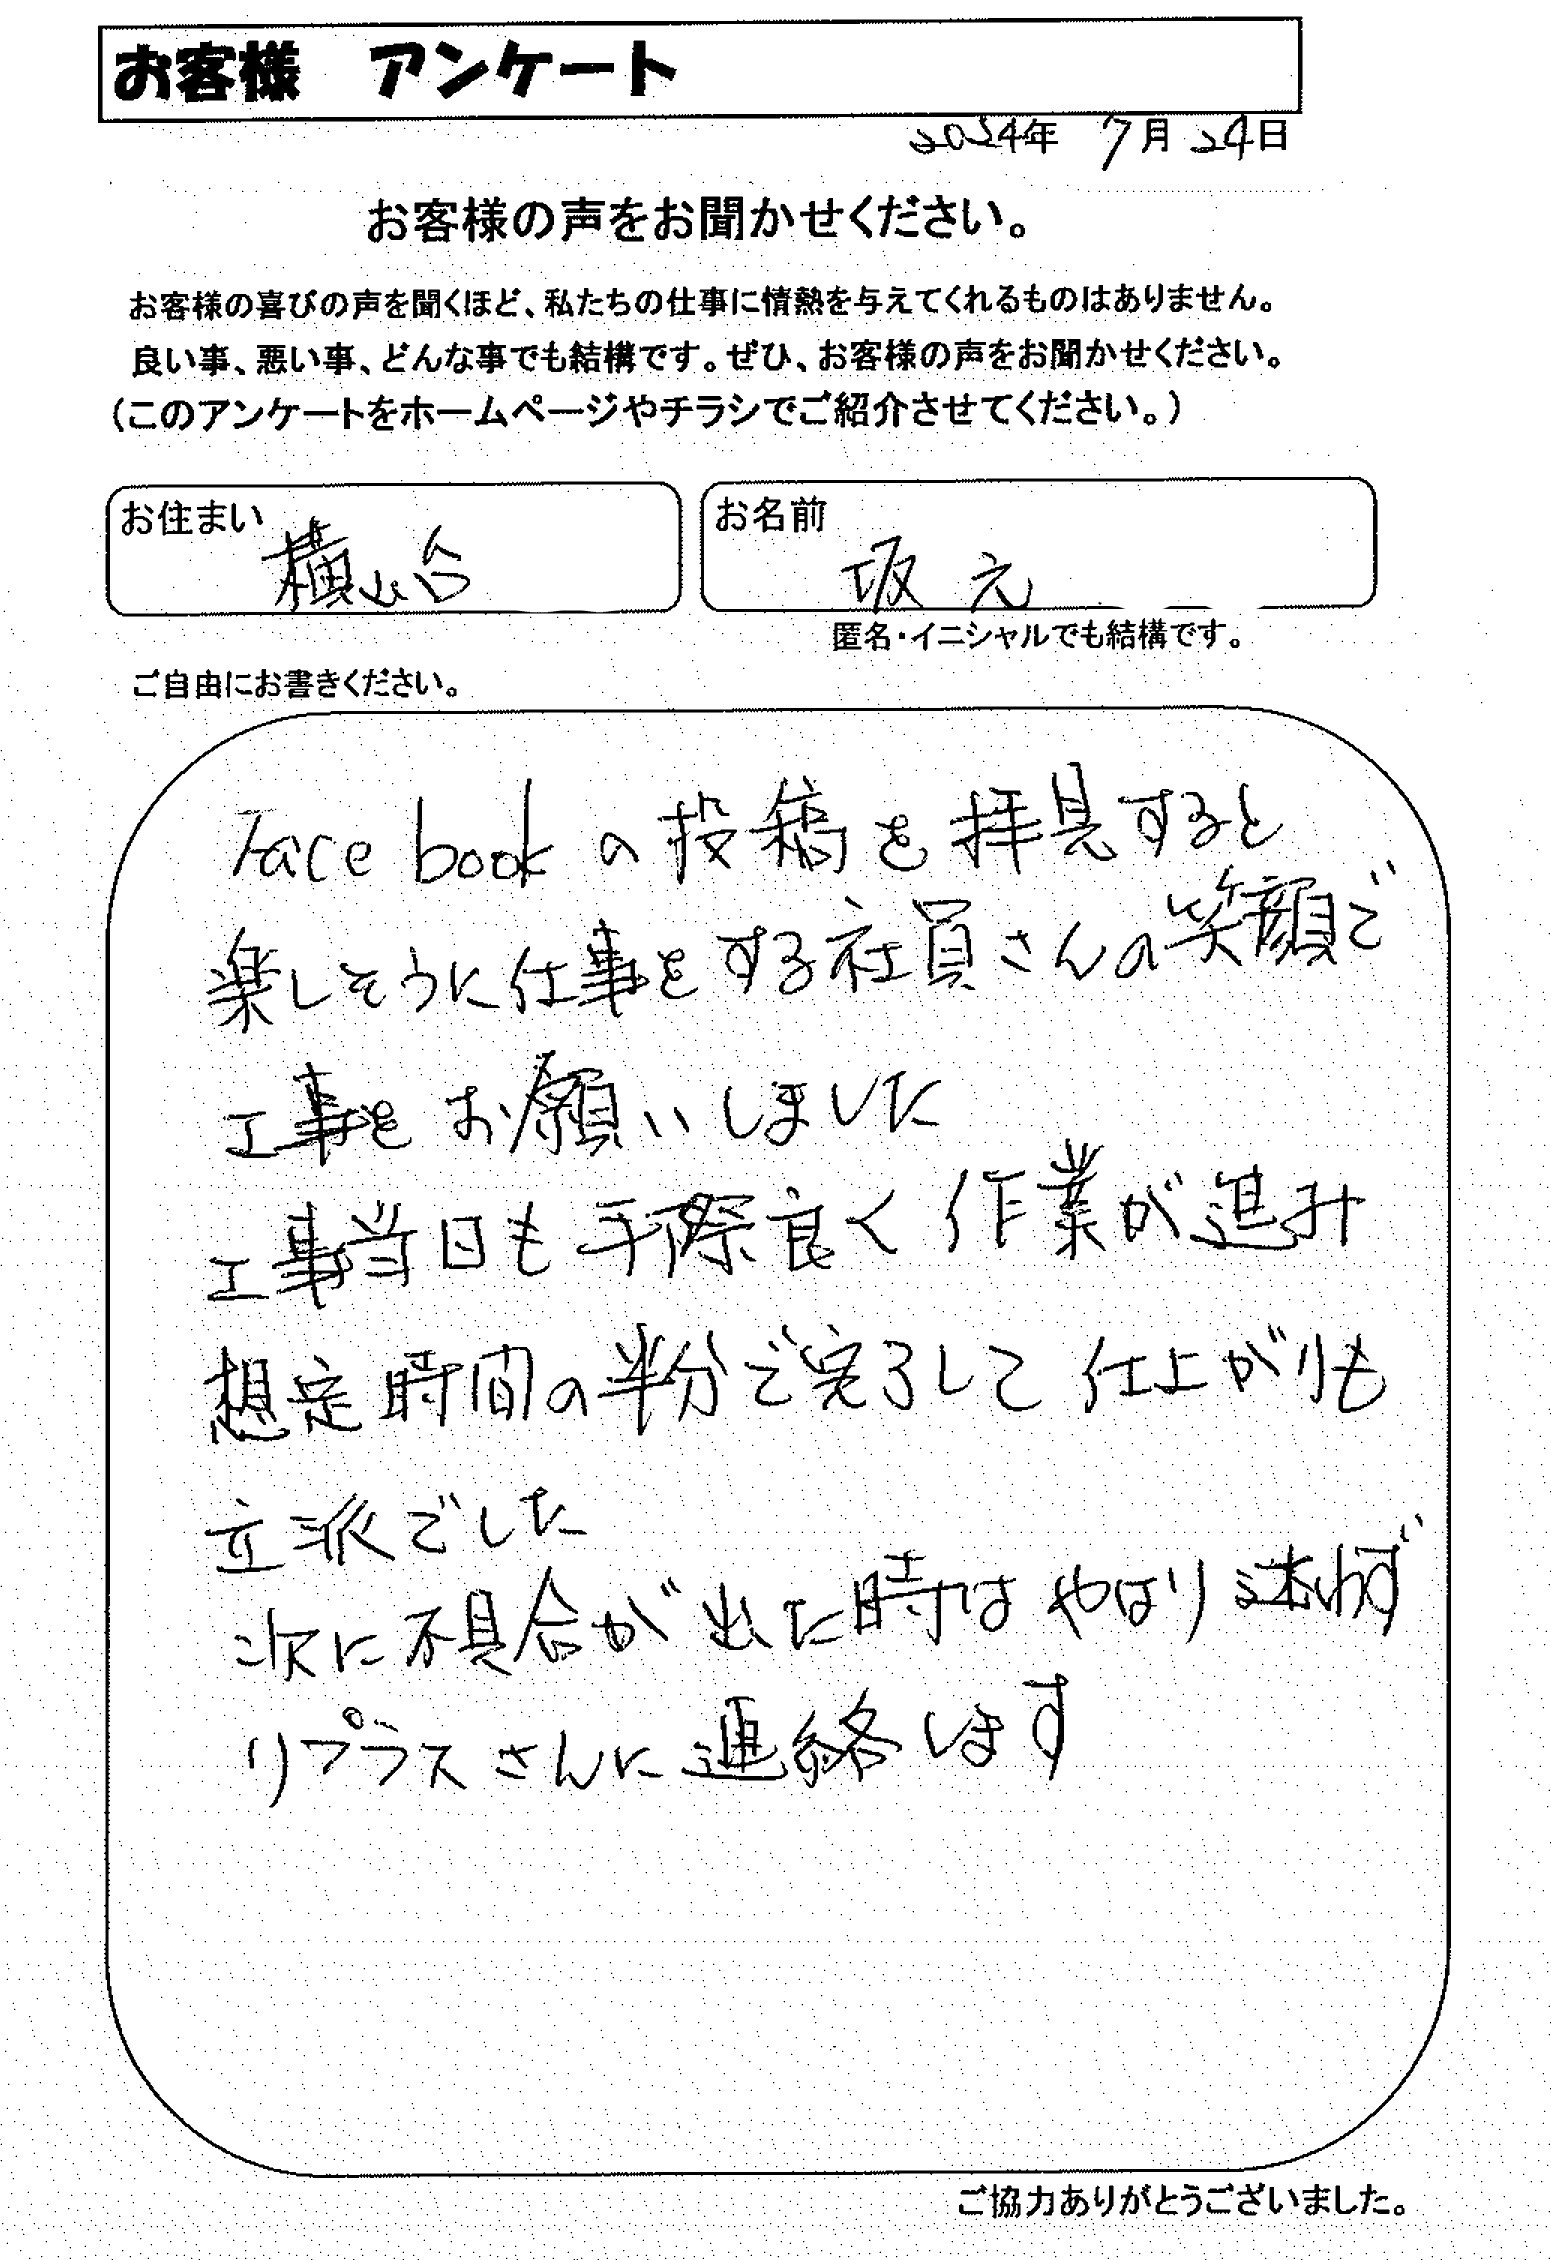 お客様 アンケート
2024年 7月 24日
お客様の声をお聞かせください。
お客様の喜びの声を聞くほど、私たちの仕事に情熱を与えてくれるものはありません。
良い事、悪い事、どんな事でも結構です。ぜひ、お客様の声をお聞かせください。
(このアンケートをホームページやチラシでご紹介させてください。)
お住まい
横山台
お名前
坂元
匿名・イニシャルでも結構です。
ご自由にお書きください。
Facebookの投稿を拝見すると
楽しそうに仕事をする社員さんの笑顔で
工事をお願いしました
工事当日も手際良く作業が進み
想定時間の半分で完了して仕上がりも
立派でした
次に不具合が出た時はやはり迷わず
リプラスさんに連絡します
ご協力ありがとうございました。